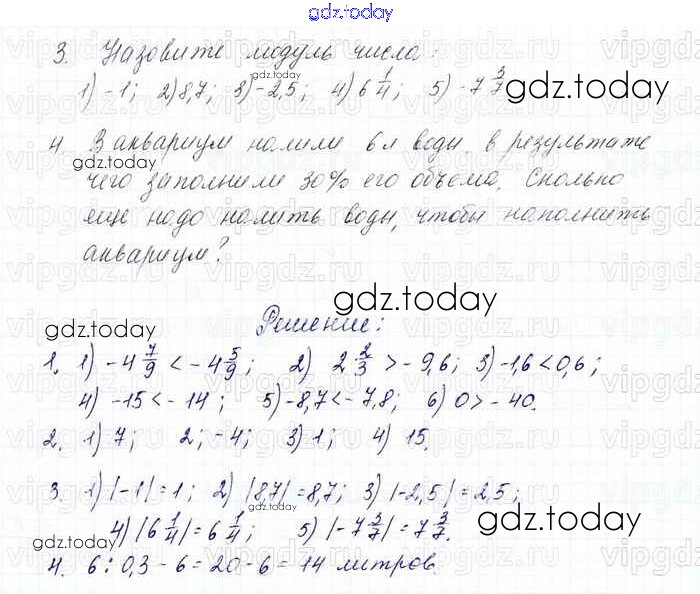 gdz.today
3. Назовите модуль числа:
1) -1; 2) 8,7; 3) -2,5; 4) 6 1/4; 5) -7 3/7
4 В аквариум налили 6 л воды, в результате
чего заполнили 30% его объёма. Сколько
еще надо налить воды, чтобы наполнить
аквариум?
Решение:
1. 1) -4 7/9 < -4 5/9; 2) 2 2/3 > -9,6; 3) -1,6 < 0,6;
4) -15 < -14; 5) -8,7 < -7,8; 6) 0 > -40.
2. 1) 7; 2; -4; 3) 1; 4) 15.
3. 1) |-1| = 1; 2) |8,7| = 8,7; 3) |-2,5| = 2,5;
4) |6 1/4| = 6 1/4; 5) |-7 3/7| = 7 3/7.
4. 6 : 0,3 - 6 = 20 - 6 = 14 литров